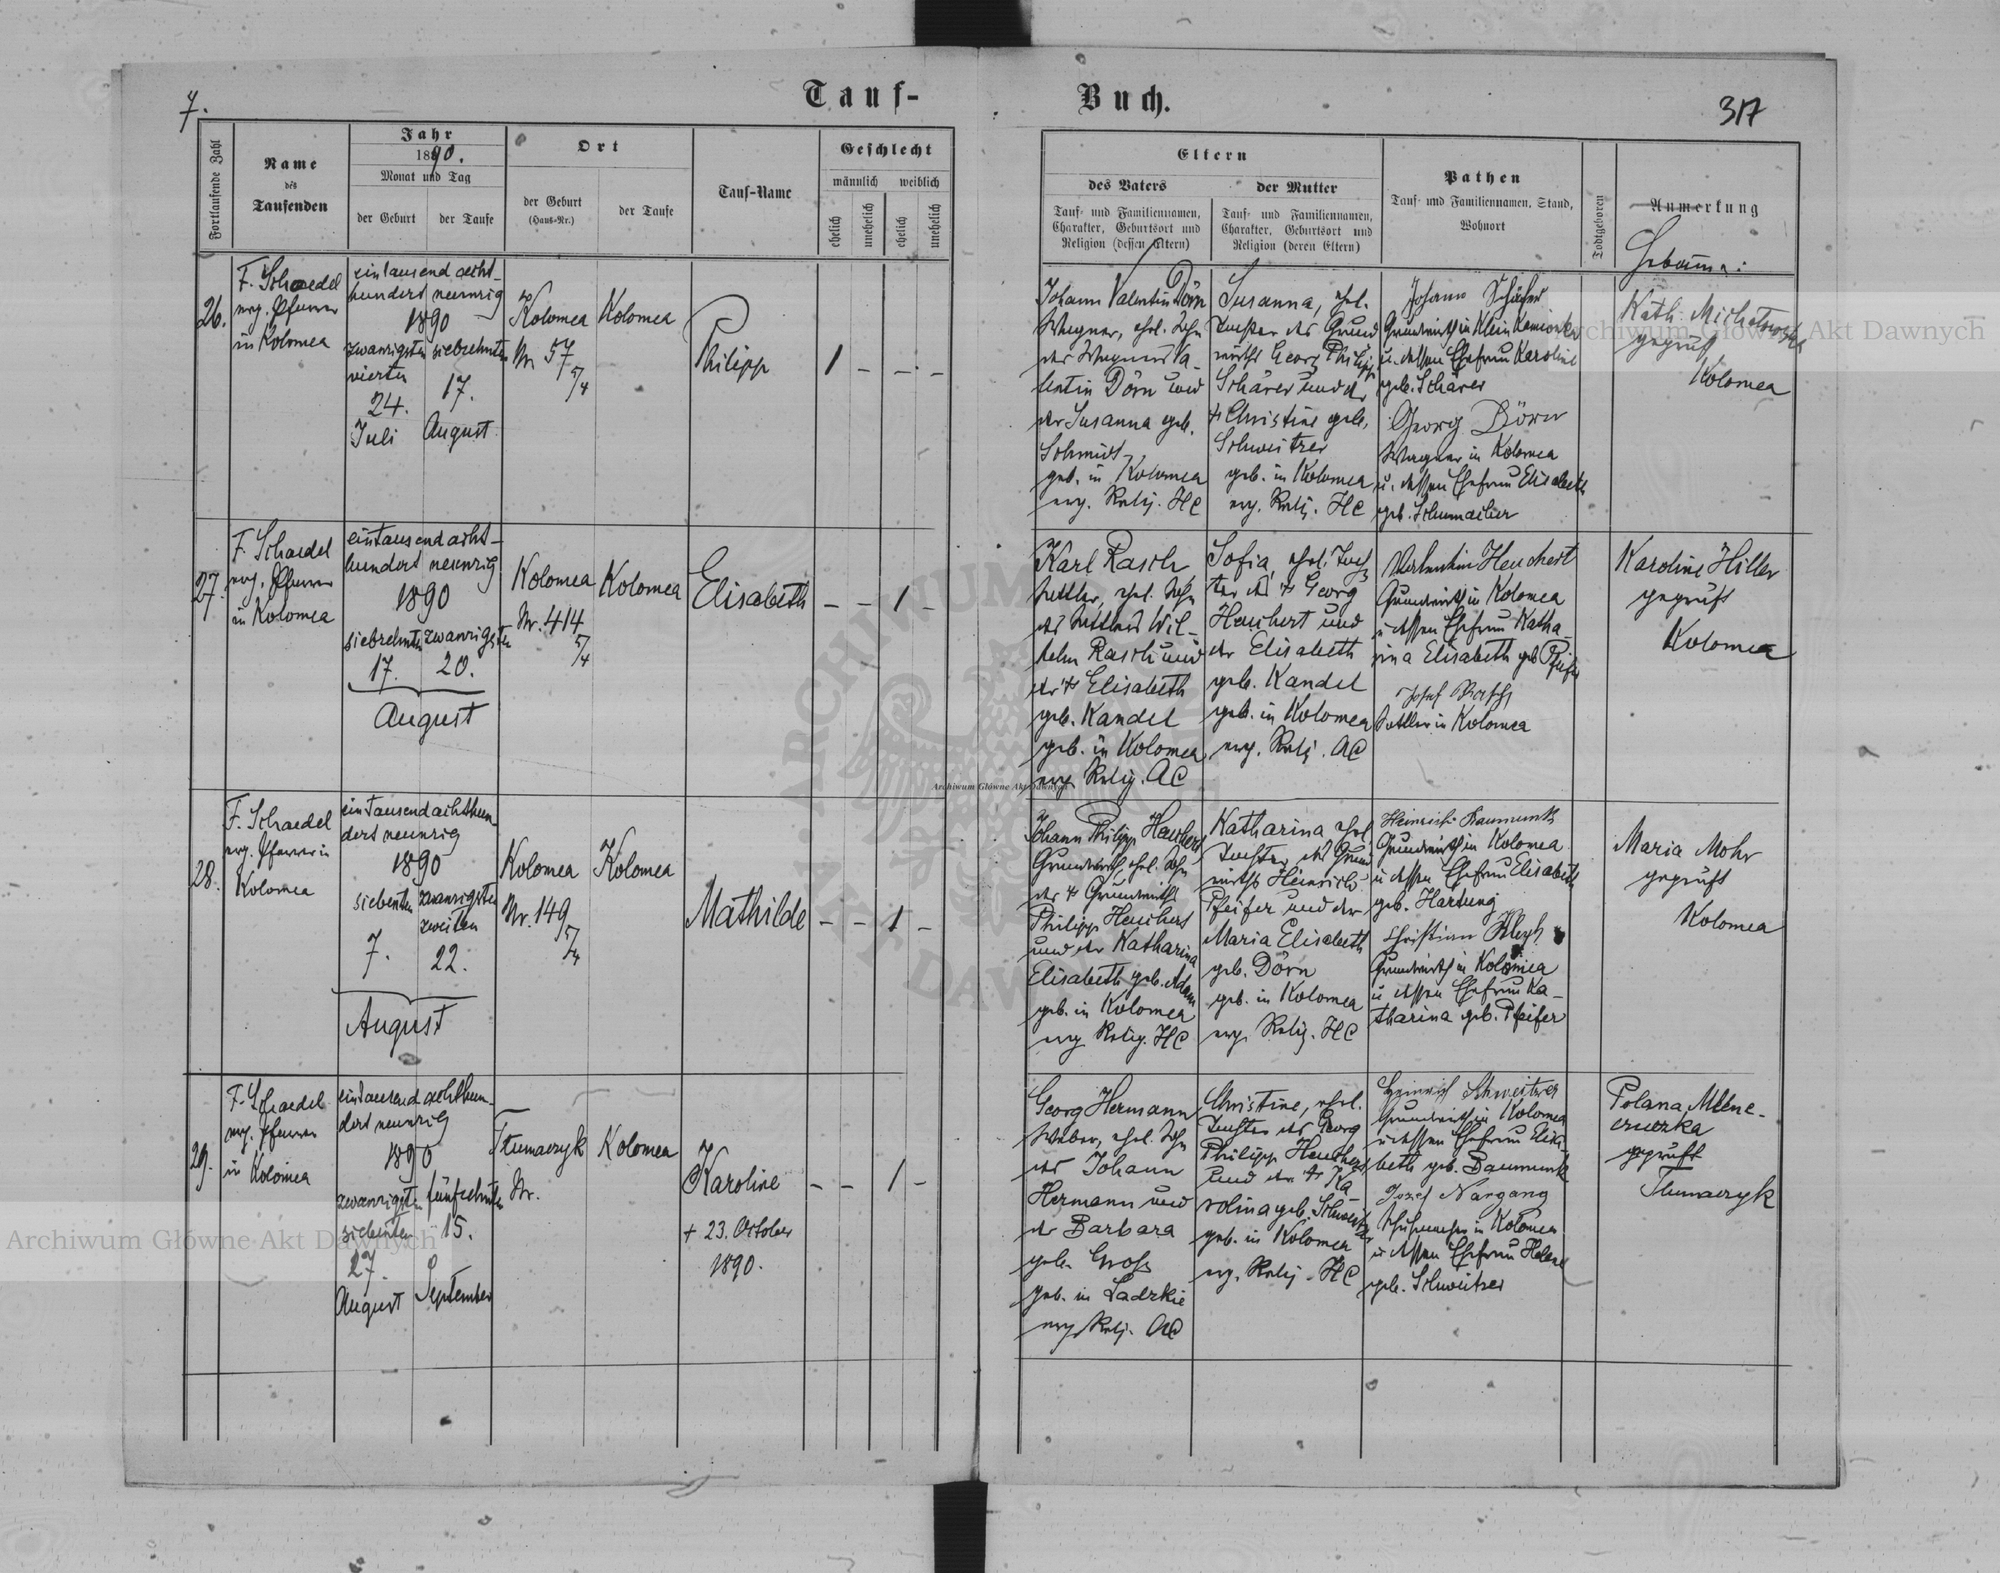 7.
Tauf-
Buch.
317
Fortlaufende Zahl
Name
des
Taufenden
Jahr
1890.
Monat und Tag
der Geburt
der Taufe
Ort
der Geburt
(Haus-Nr.)
der Taufe
Tauf-Name
Geschlecht
männlich
weiblich
ehelich
unehelich
ehelich
unehelich
Eltern
des Vaters
Tauf- und Familiennamen,
Charakter, Geburtsort und
Religion (dessen Eltern)
der Mutter
Tauf- und Familiennamen,
Charakter, Geburtsort und
Religion (deren Eltern)
Pathen
Tauf- und Familiennamen, Stand,
Wohnort
Todtgeboren
Anmerkung
26.
F. Schaedel
evg. Pfarrer
in Kolomea
eintausend acht-
hundert neunzig
1890
zwanzigsten
vierten
24.
Juli
siebzehnten
17.
August
Kolomea
Nr. 57
5/4
Kolomea
Philipp
1 - - -
Johann Valentin Dörn
Wagner, ehel. Sohn
des Wagners Va-
lentin Dörn und
der Susanna geb.
Schmidt,
geb. in Kolomea
evg. Relig. HC
Susanna, ehel.
Tochter des Grund
wirths Georg Philipp
Schärer und der
† Christine geb.
Schweitzer
geb. in Kolomea
evg. Relig. HC
Johann
Grundwirth in Klein Kamionka
u. dessen Ehefrau Karoline
geb. Schärer
Georg Dörn
Wagner in Kolomea
u. dessen Ehefrau Elisabeth
geb.
Kath.
geprüft
Kolomea
27.
F. Schaedel
evg. Pfarrer
in Kolomea
eintausend acht-
hundert neunzig
1890
siebzehnten
17.
zwanzigsten
20.
August
Kolomea
Nr. 414
5/4
Kolomea
Elisabeth
- - 1 -
Karl Rasch,
Sattler, ehel. Sohn
des Sattlers Wil-
helm Rasch und
der † Elisabeth
geb. Kandel
geb. in Kolomea
evg. Relig. AC
Sofia, ehel. Toch
ter des † Georg
Heuchert und
der Elisabeth
geb. Kandel
geb. in Kolomea
evg. Relig. AC
Valentin Heuchert
Grundwirth in Kolomea
u dessen Ehefrau Katha-
rina Elisabeth geb Pfeifer
Josef Rasch
Sattler in Kolomea
Karoline Hiller
geprüft
Kolomea
28.
F. Schaedel
evg. Pfarrer in
Kolomea
eintausend achthun-
dert neunzig
1890
siebenten
7.
zwanzigsten
zweiten
22.
August
Kolomea
Nr. 149
5/4
Kolomea
Mathilde
- - 1 -
Johann Philipp Heuchert
Grundwirth ehel. Sohn
des † Grundwirths
Philipp Heuchert
und der Katharina
Elisabeth geb. Adam
geb. in Kolomea
evg Relig. HC
Katharina ehel
Tochter des Grund
wirths Heinrich
Pfeifer und der
Maria Elisabeth
geb. Dörn
geb. in Kolomea
evg. Relig. HC
Heinrich Baumunk
Grundwirth in Kolomea
u dessen Ehefrau Elisabeth
geb. Hartung
Christian
Grundwirth in Kolomea
u dessen Ehefrau Ka-
tharina geb. Pfeifer
Maria Mohr
geprüft
Kolomea
29.
F. Schaedel
evg. Pfarrer
in Kolomea
eintausend achthun-
dert neunzig
1890
zwanzigsten
siebenten
27.
August
fünfzehnten
15.
September
Tłumaczyk
Nr.
Kolomea
Karoline
† 23. October
1890.
- - 1 -
Georg Hermann
Weber, ehel. Sohn
des Johann
Hermann und
der Barbara
geb. Gross
geb. in Ladzkie
evg Relig. AC
Christine, ehel.
Tochter des Georg
Philipp Heuchert
und der † Ka-
rolina geb. Schweitzer
geb. in Kolomea
evg. Relig. HC
Heinrich Schweitzer
Grundwirth in Kolomea
u dessen Ehefrau Elisa-
beth geb. Baumunk
Josef Nargang
Schuhmacher in Kolomea
u dessen Ehefrau Helene
geb. Schweitzer
geprüft
Tłumaczyk
Archiwum Główne Akt Dawnych
Archiwum Główne Akt Dawnych
Archiwum Główne Akt Dawnych